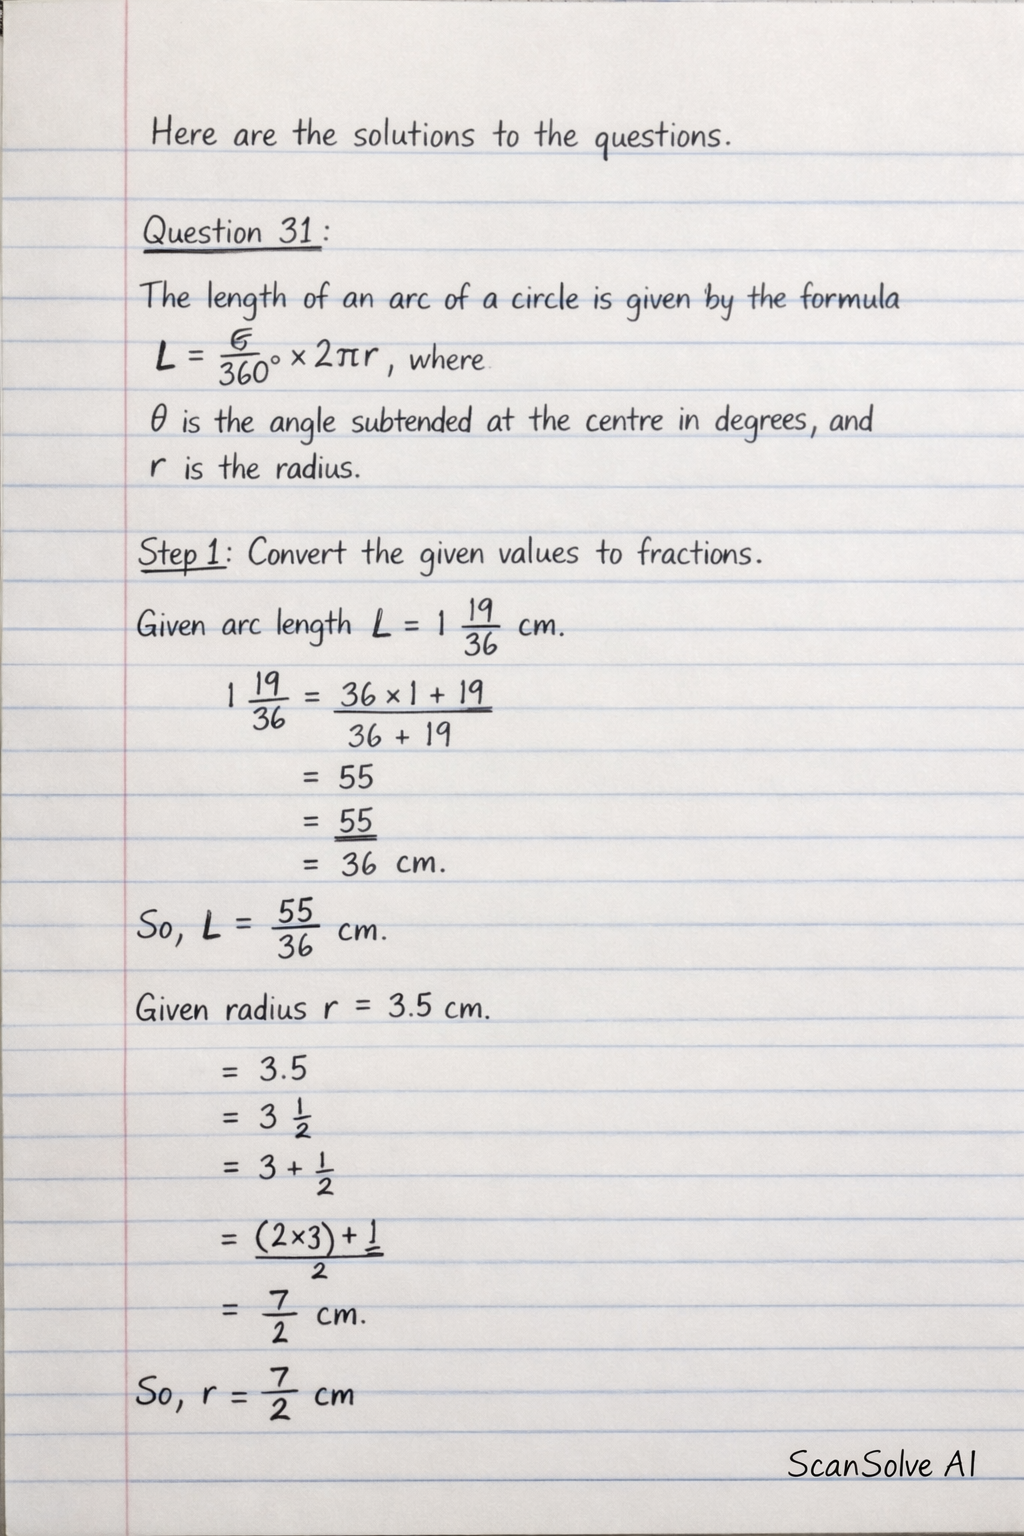 Here are the solutions to the questions.
Question 31:
The length of an arc of a circle is given by the formula
L = 6/360° × 2πr, where
θ is the angle subtended at the centre in degrees, and
r is the radius.
Step 1: Convert the given values to fractions.
Given arc length L = 1 19/36 cm.
1 19/36 = 36 × 1 + 19
36 + 19
= 55
= 55
= 36 cm.
So, L = 55/36 cm.
Given radius r = 3.5 cm.
= 3.5
= 3 1/2
= 3 + 1/2
= (2×3) + 1/2
= 7/2 cm.
So, r = 7/2 cm
ScanSolve AI